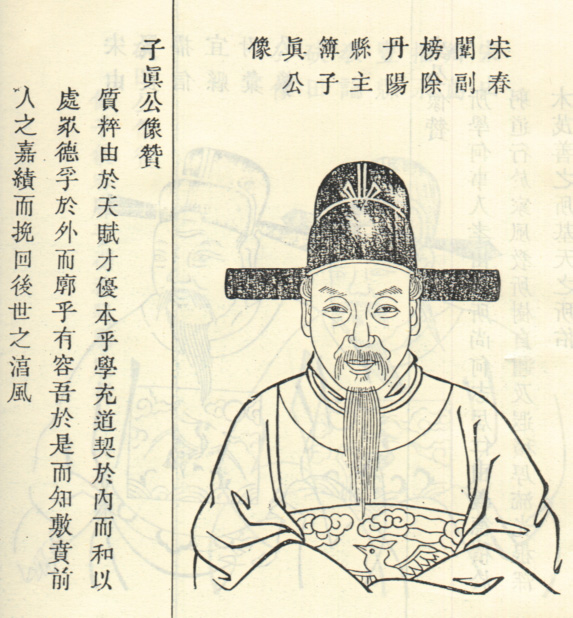 宋春
闈副
榜除
丹陽
縣主
簿子
眞公
像
子眞公像贊
質粹由於天賦才優本乎學充道契於內而和以
處眾德孚於外而廓乎有容吾於是而知敷賁前
人之嘉績而挽回後世之湻風